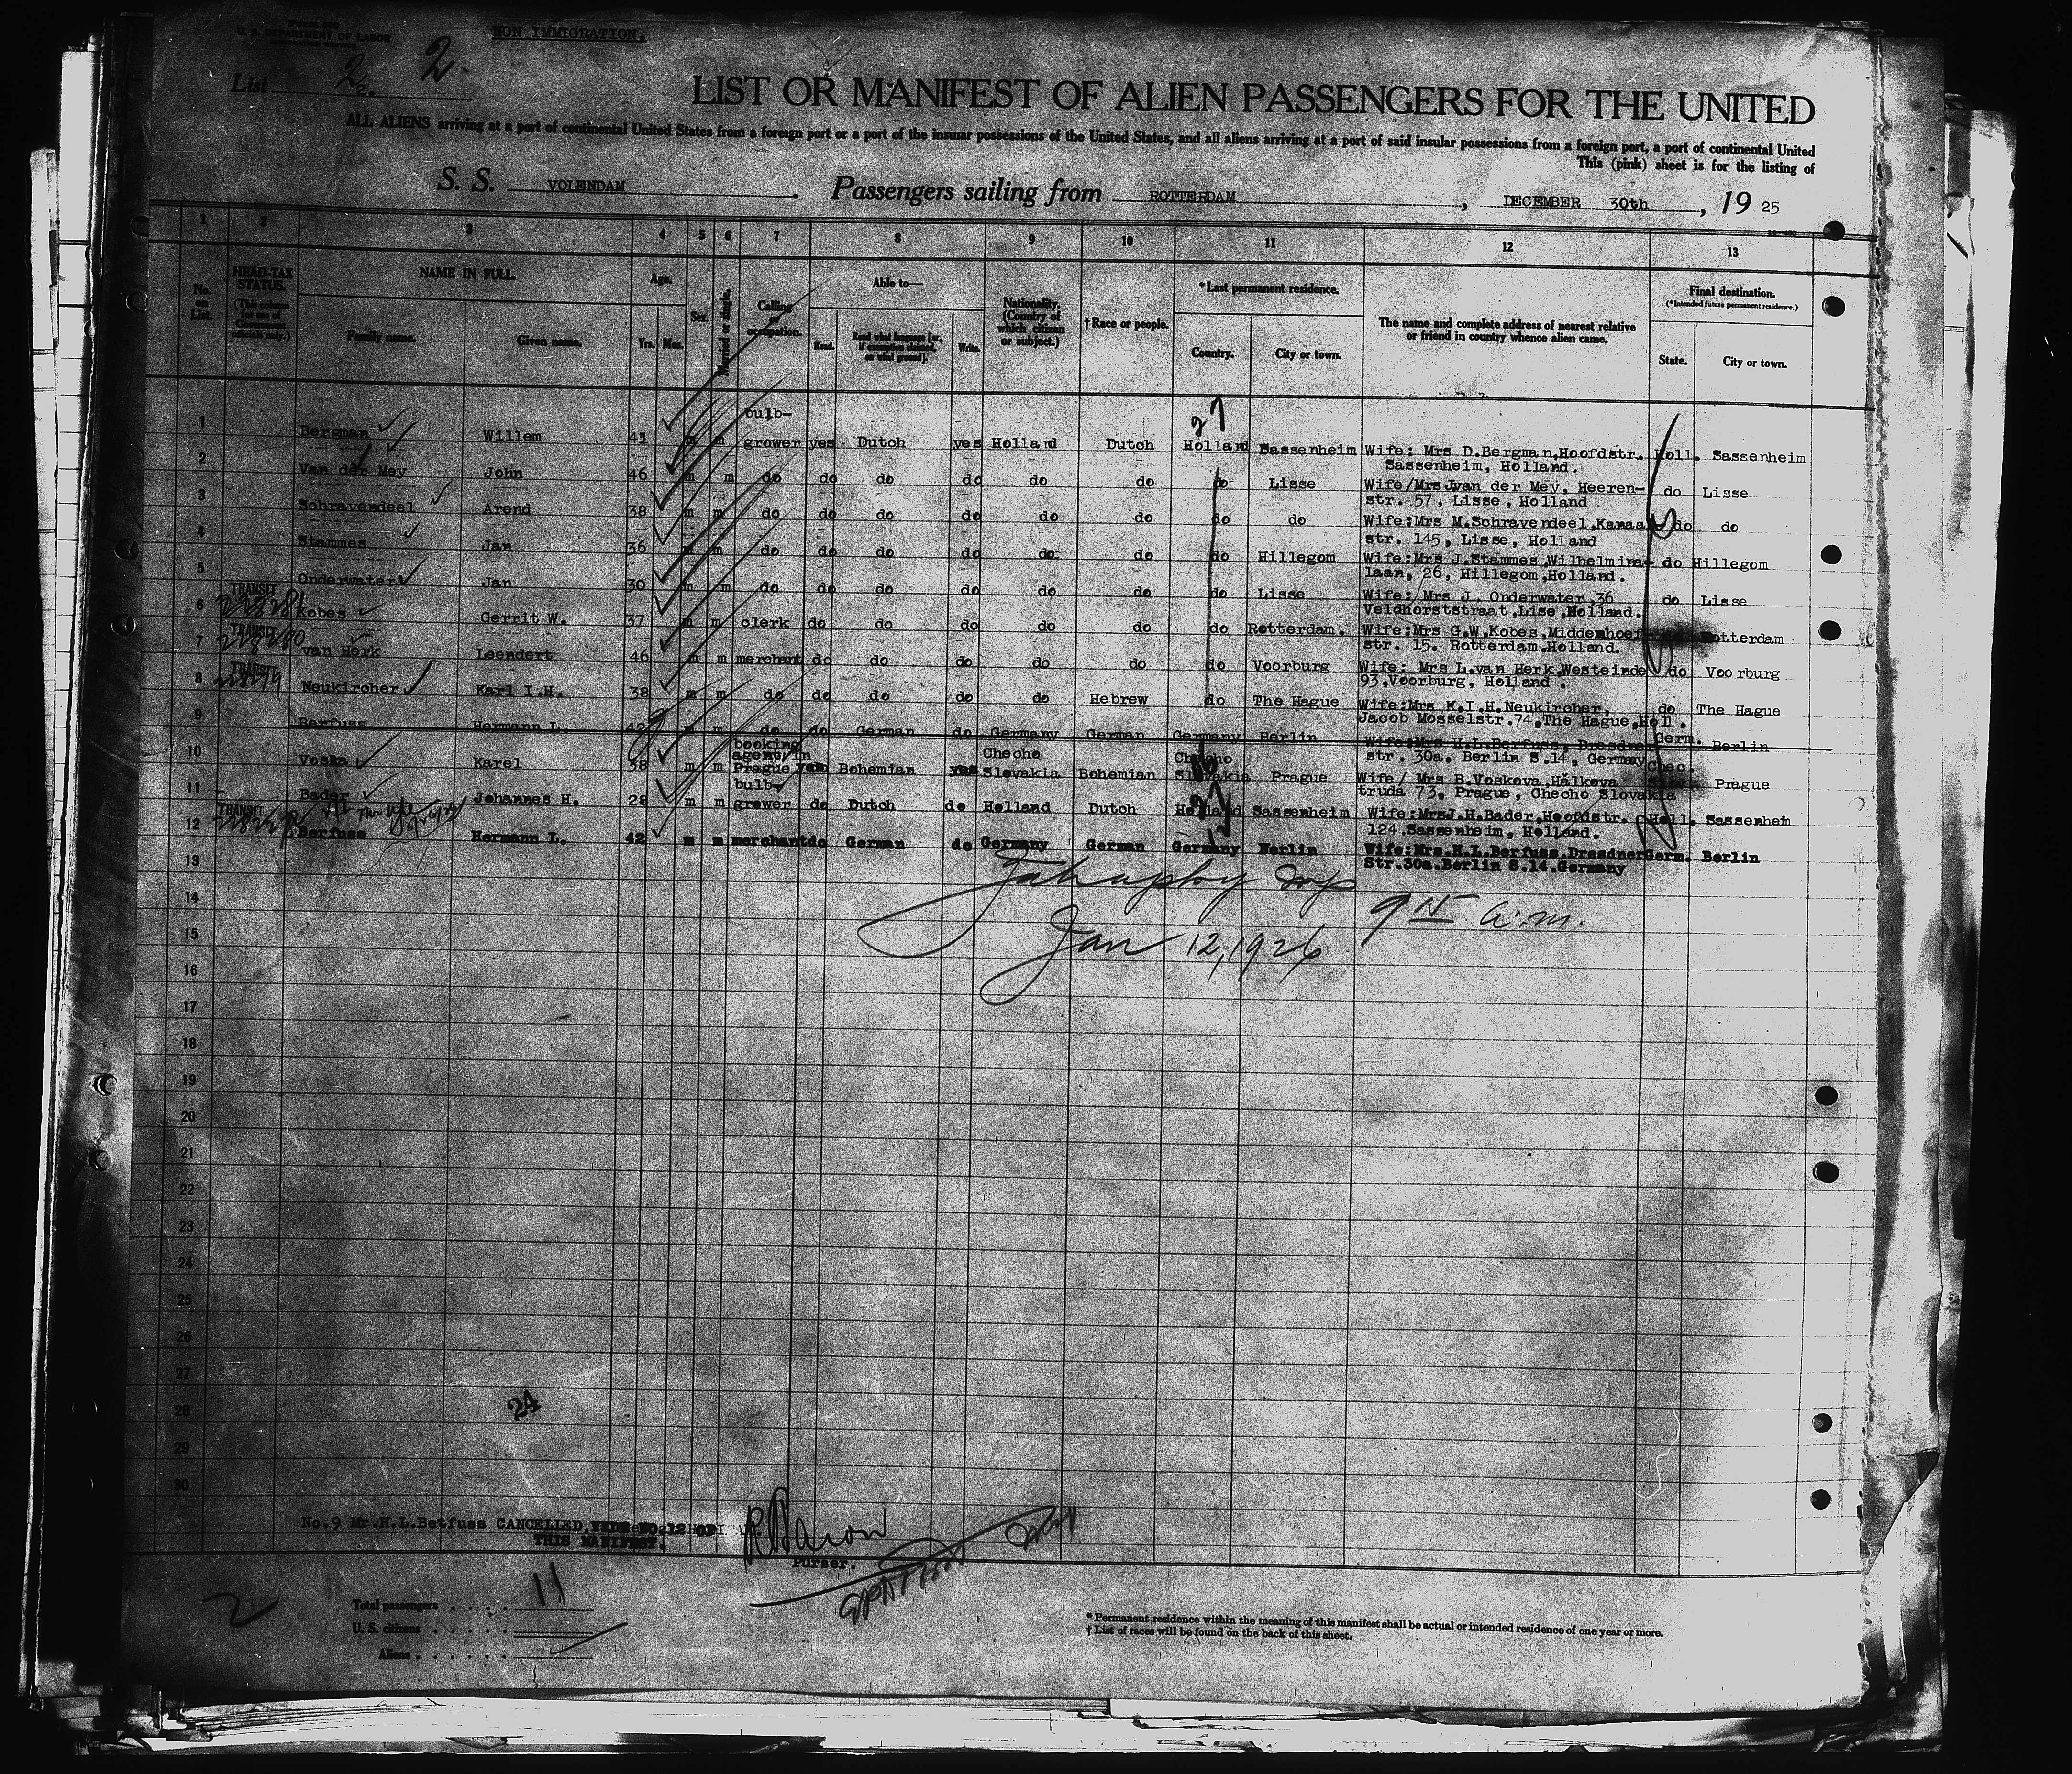 U. S. DEPARTMENT OF LABOR
NON IMMIGRATION.
List 2. 2.
LIST OR MANIFEST OF ALIEN PASSENGERS FOR THE UNITED
ALL ALIENS arriving at a port of continental United States from a foreign port or a port of the insular possessions of the United States, and all aliens arriving at a port of said insular possessions from a foreign port, a port of continental United
This (pink) sheet is for the listing of
S. S. VOLENDAM. Passengers sailing from ROTTERDAM, DECEMBER 30th, 19 25
1 2 3 4 5 6 7 8 9 10 11 12 13
No. on List.
HEAD-TAX STATUS.
NAME IN FULL.
Family name. Given name.
Age. Yrs. Mos.
Sex.
Married or single.
Calling or occupation.
Able to—
Read. Write.
Nationality. (Country of which citizen or subject.)
†Race or people.
*Last permanent residence.
Country. City or town.
The name and complete address of nearest relative or friend in country whence alien came.
Final destination.
(*Intended future permanent residence.)
State. City or town.
1 Bergman Willem 41 m m bulb-grower yes Dutch yes Holland Dutch Holland Sassenheim Wife: Mrs D.Bergman,Hoofdstr. Holl. Sassenheim
Sassenheim, Holland.
2 Van der Mey John 46 m m do do do do do do do Lisse Wife/Mrs Jvan der Mey, Heeren- do Lisse
str. 57, Lisse, Holland
3 Schravendeel Arend 38 m m do do do do do do do do Wife:Mrs M.Schravendeel,Kanaa do do
str. 145, Lisse, Holland
4 Stammes Jan 36 m m do do do do do do do Hillegom Wife:Mrs J.Stammes,Wilhelmina- do Hillegom
laan, 26, Hillegom,Holland.
5 Onderwater Jan 30 m m do do do do do do do Lisse Wife: Mrs J. Onderwater,36 do Lisse
Veldhorststraat,Lise,Holland.
TRANSIT
6 Kobes Gerrit W. 37 m m clerk do do do do do do Rotterdam. Wife:Mrs G.W.Kobes,Middenhoef Rotterdam
str. 15. Rotterdam.Holland.
TRANSIT
7 van Herk Leendert 46 m m merchant do do do do do do Voorburg Wife: Mrs L.van Herk,Westeinde do Voorburg
93.Voorburg, Holland.
TRANSIT
8 Neukircher Karl I.H. 38 m m do do do do do Hebrew do The Hague Wife:Mrs K.I.H.Neukircher, do The Hague
Jacob Mosselstr.74,The Hague,Holl.
9 Berfuss Hermann L. 42 m m do do German do Germany German Germany Berlin Wife:Mrs H.L.Berfuss, Dresdner Germ. Berlin
str. 30a. Berlin S.14, Germany
10 Voska Karel 38 m m booking agent/in Prague yes Bohemian yes Checho Slovakia Bohemian Checho Slovakia Prague Wife/ Mrs B.Voskova Hálkova Chec. Prague
truda 73. Prague, Checho Slovakia
11 Bader Johannes H. 28 m m bulb-grower do Dutch do Holland Dutch Holland Sassenheim Wife:MrsJ.H.Bader,Hoofdstr. Holl. Sassenheim
124.Sassenheim, Holland.
TRANSIT
12 Berfuss Hermann L. 42 m m merchant do German do Germany German Germany Berlin Wife:Mrs.H.L.Berfuss.Dresdner Germ. Berlin
Str.30a.Berlin S.14.Germany
13
14 9 15 a.m.
15 Jan 12, 1926
16
17
18
19
20
21
22
23
24
25
26
27
28
24
29
30
No.9 Mr.H.L.Betfuss CANCELLED,VIDE NO.12 OF
THIS MANIFEST.
Purser.
2
Total passengers . . . . 11
U. S. citizens . . . . .
Aliens . . . . . .
* Permanent residence within the meaning of this manifest shall be actual or intended residence of one year or more.
† List of races will be found on the back of this sheet.